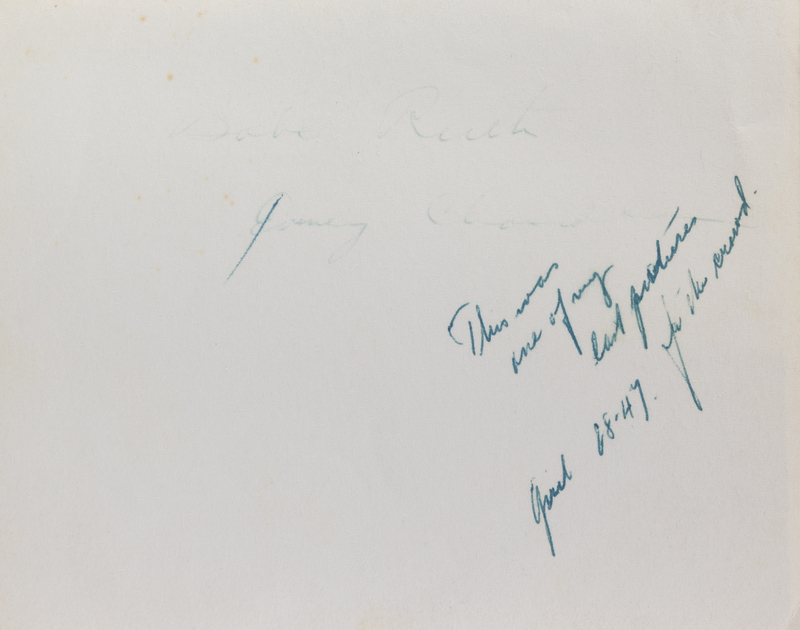 Babe Ruth
This was
one of my
last pictures
the crowd.
April 28-47.